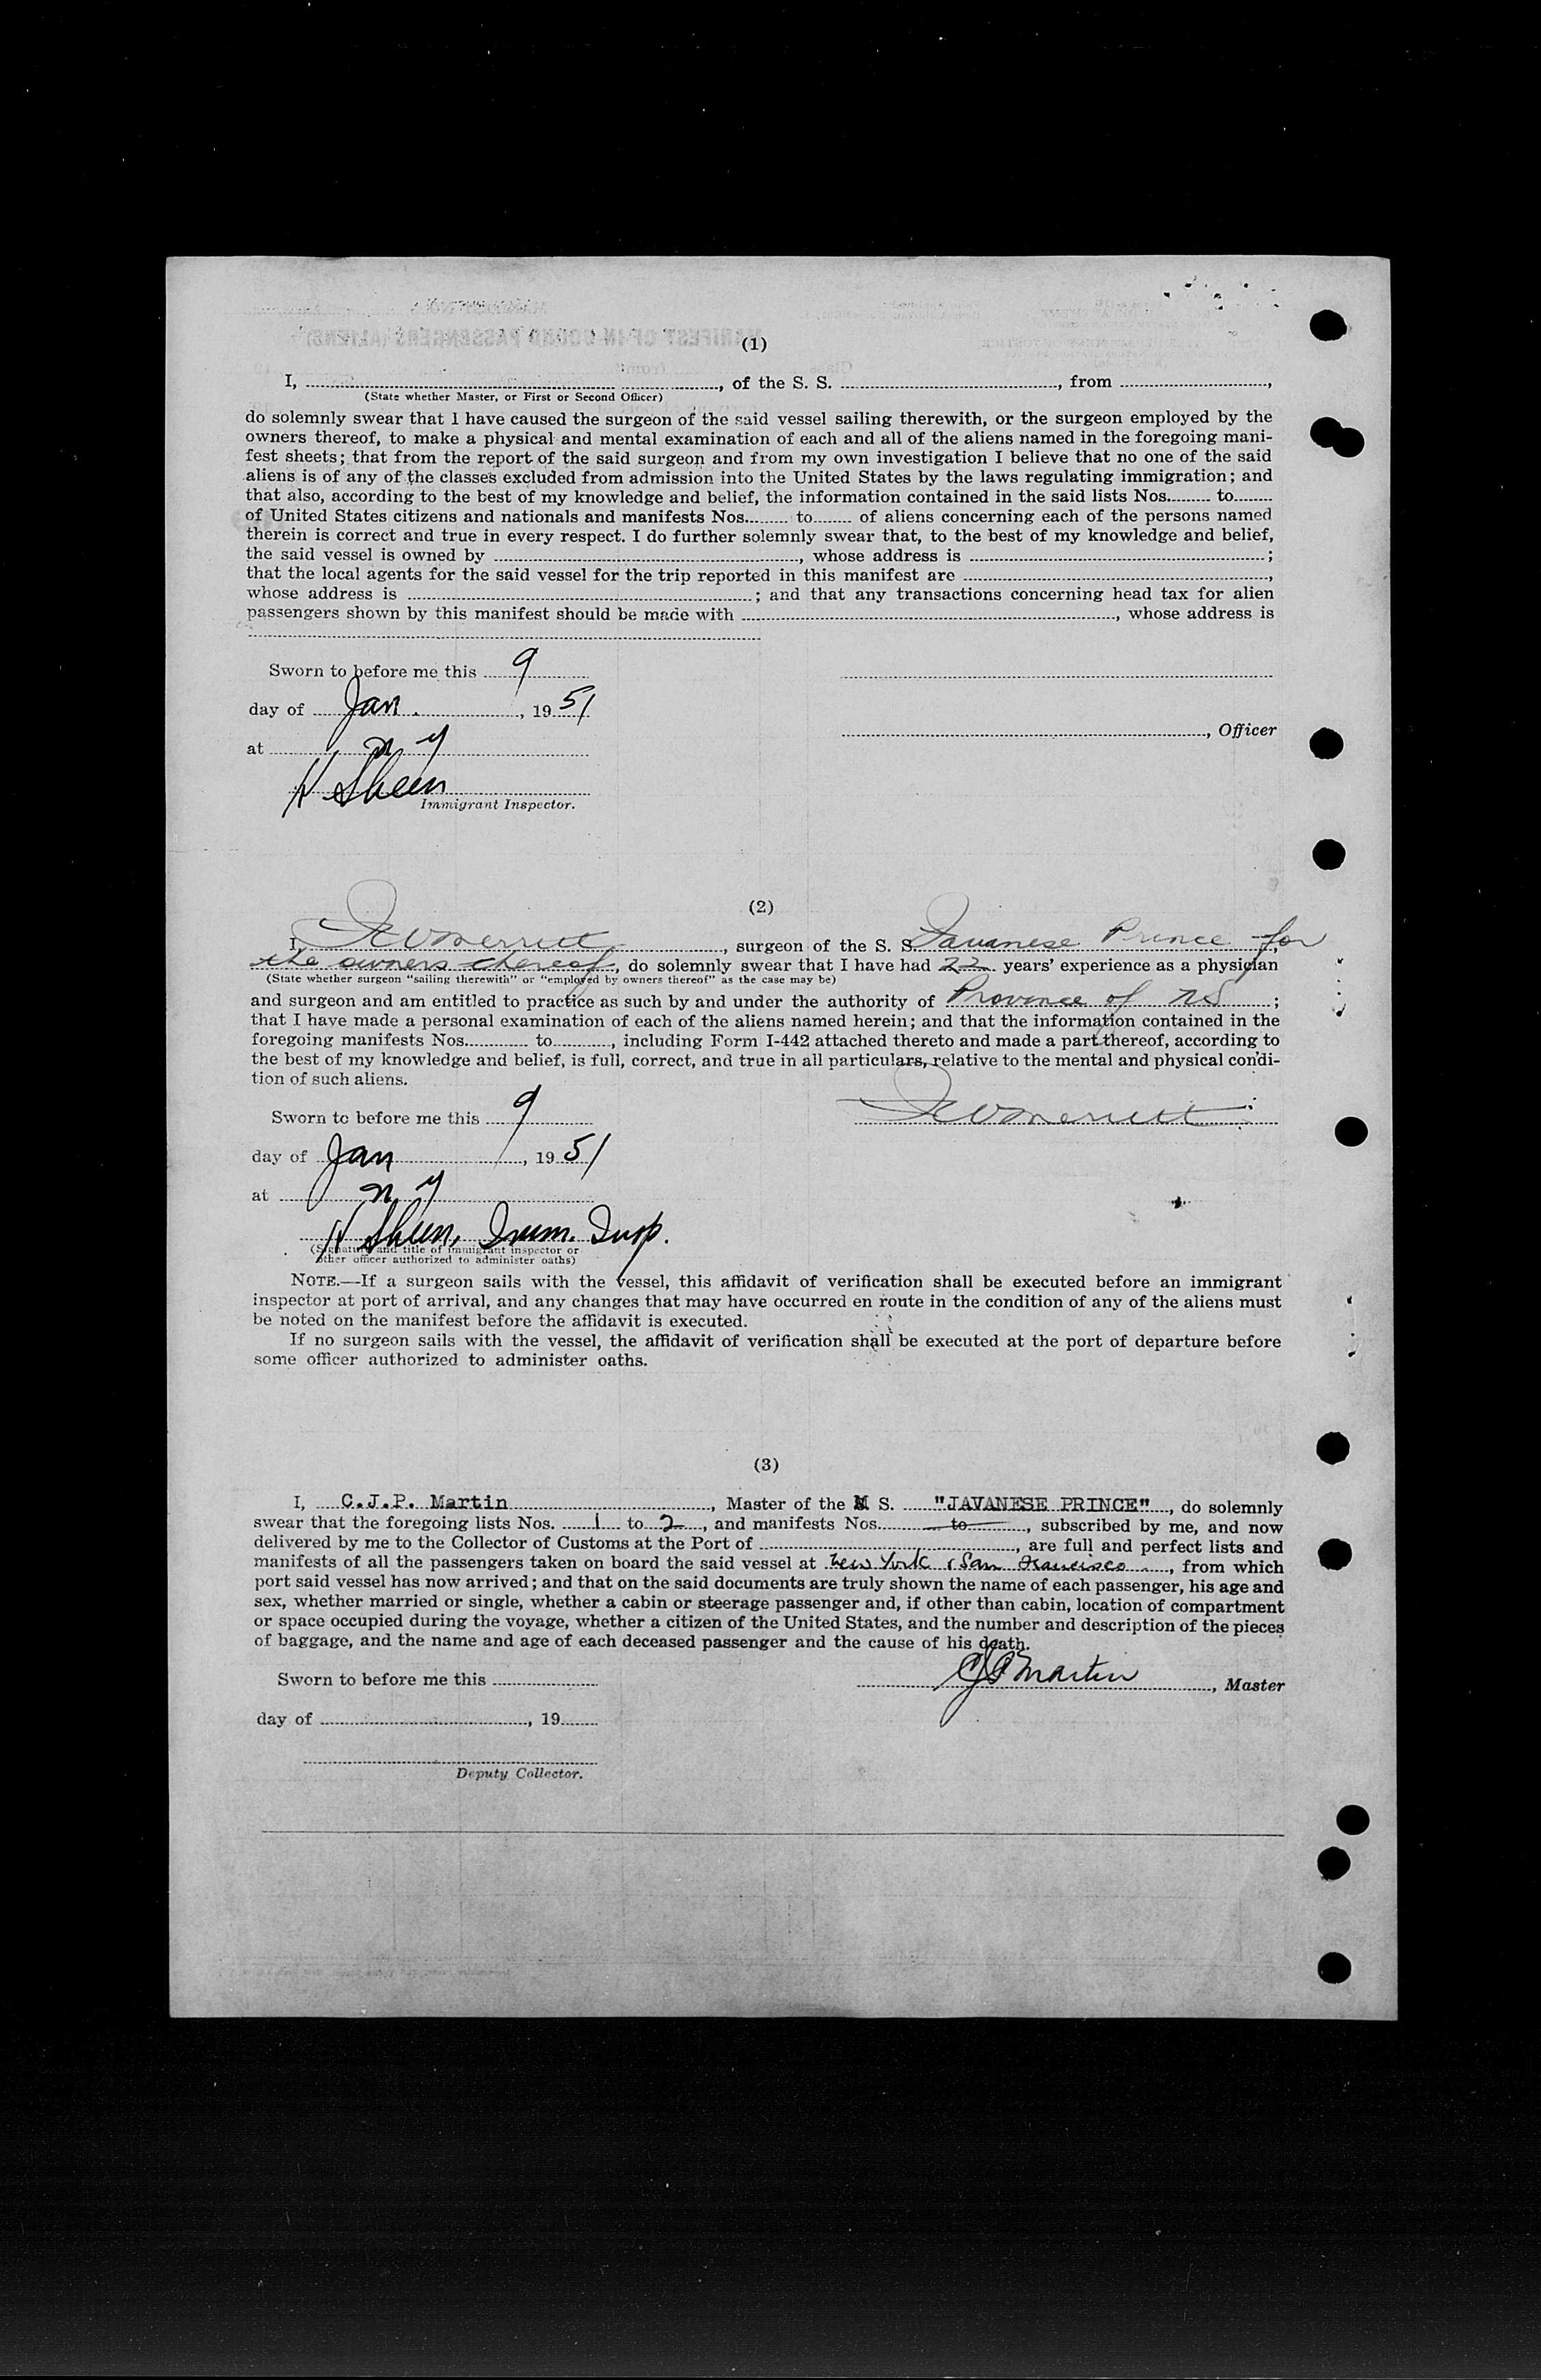 (1)
I, ............, of the S. S. ............, from ............,
(State whether Master, or First or Second Officer)
do solemnly swear that I have caused the surgeon of the said vessel sailing therewith, or the surgeon employed by the
owners thereof, to make a physical and mental examination of each and all of the aliens named in the foregoing mani-
fest sheets; that from the report of the said surgeon and from my own investigation I believe that no one of the said
aliens is of any of the classes excluded from admission into the United States by the laws regulating immigration; and
that also, according to the best of my knowledge and belief, the information contained in the said lists Nos......... to.........
of United States citizens and nationals and manifests Nos......... to........ of aliens concerning each of the persons named
therein is correct and true in every respect. I do further solemnly swear that, to the best of my knowledge and belief,
the said vessel is owned by ............, whose address is ............;
that the local agents for the said vessel for the trip reported in this manifest are ............,
whose address is ............; and that any transactions concerning head tax for alien
passengers shown by this manifest should be made with ............, whose address is
Sworn to before me this 9
day of Jan. , 19 51
, Officer
at N Y
H Sheen
Immigrant Inspector.
(2)
I, Merritt, surgeon of the S. S. Javanese Prince for
the owners thereof, do solemnly swear that I have had 22 years' experience as a physician
(State whether surgeon "sailing therewith" or "employed by owners thereof" as the case may be)
and surgeon and am entitled to practice as such by and under the authority of Province of NS ;
that I have made a personal examination of each of the aliens named herein; and that the information contained in the
foregoing manifests Nos............. to............, including Form I-442 attached thereto and made a part thereof, according to
the best of my knowledge and belief, is full, correct, and true in all particulars, relative to the mental and physical condi-
tion of such aliens.
Sworn to before me this 9
Merritt
day of Jan , 19 51
at N Y
H Sheen, Imm. Insp.
(Signature and title of immigrant inspector or
other officer authorized to administer oaths)
NOTE.—If a surgeon sails with the vessel, this affidavit of verification shall be executed before an immigrant
inspector at port of arrival, and any changes that may have occurred en route in the condition of any of the aliens must
be noted on the manifest before the affidavit is executed.
If no surgeon sails with the vessel, the affidavit of verification shall be executed at the port of departure before
some officer authorized to administer oaths.
(3)
I, C.J.P. Martin, Master of the M S. "JAVANESE PRINCE", do solemnly
swear that the foregoing lists Nos. 1 to 2, and manifests Nos. to, subscribed by me, and now
delivered by me to the Collector of Customs at the Port of ............, are full and perfect lists and
manifests of all the passengers taken on board the said vessel at New York & San Francisco, from which
port said vessel has now arrived; and that on the said documents are truly shown the name of each passenger, his age and
sex, whether married or single, whether a cabin or steerage passenger and, if other than cabin, location of compartment
or space occupied during the voyage, whether a citizen of the United States, and the number and description of the pieces
of baggage, and the name and age of each deceased passenger and the cause of his death.
Sworn to before me this ............
CJP Martin, Master
day of ............, 19........
Deputy Collector.